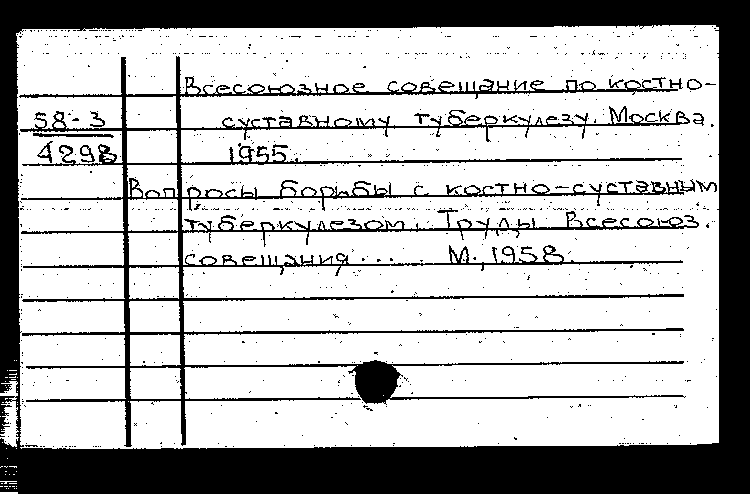 Всесоюзное совещание по костно-
58-3 суставному туберкулезу. Москва.
4298 1955.
Вопросы борьбы с костно-суставным
туберкулезом. Труды Всесоюз.
совещания... М., 1958.